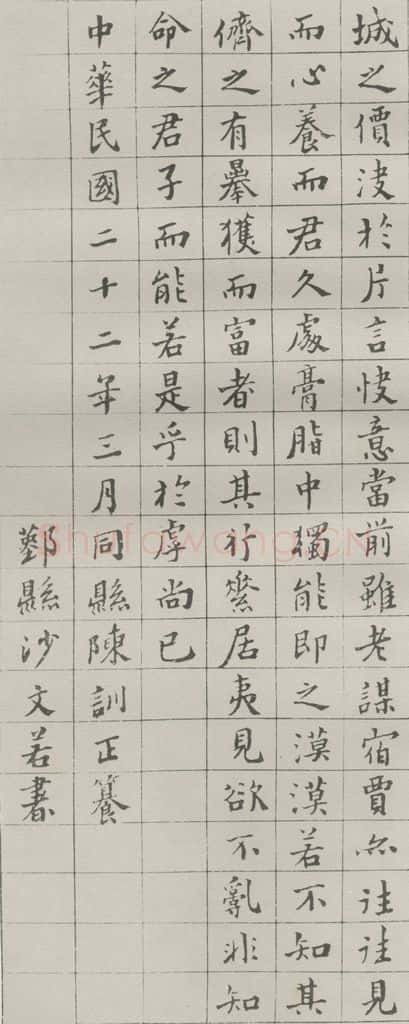 城之價決於片言快意當前雖老謀宿賈亦往往見
而心養而君久處膏脂中獨能即之漠漠若不知其
儕之有舉獲而富者則其行縶居夷見欲不亂非知
命之君子而能若是乎於虖尚已
中華民國二十二年三月同縣陳訓正篹
鄞縣沙文若書